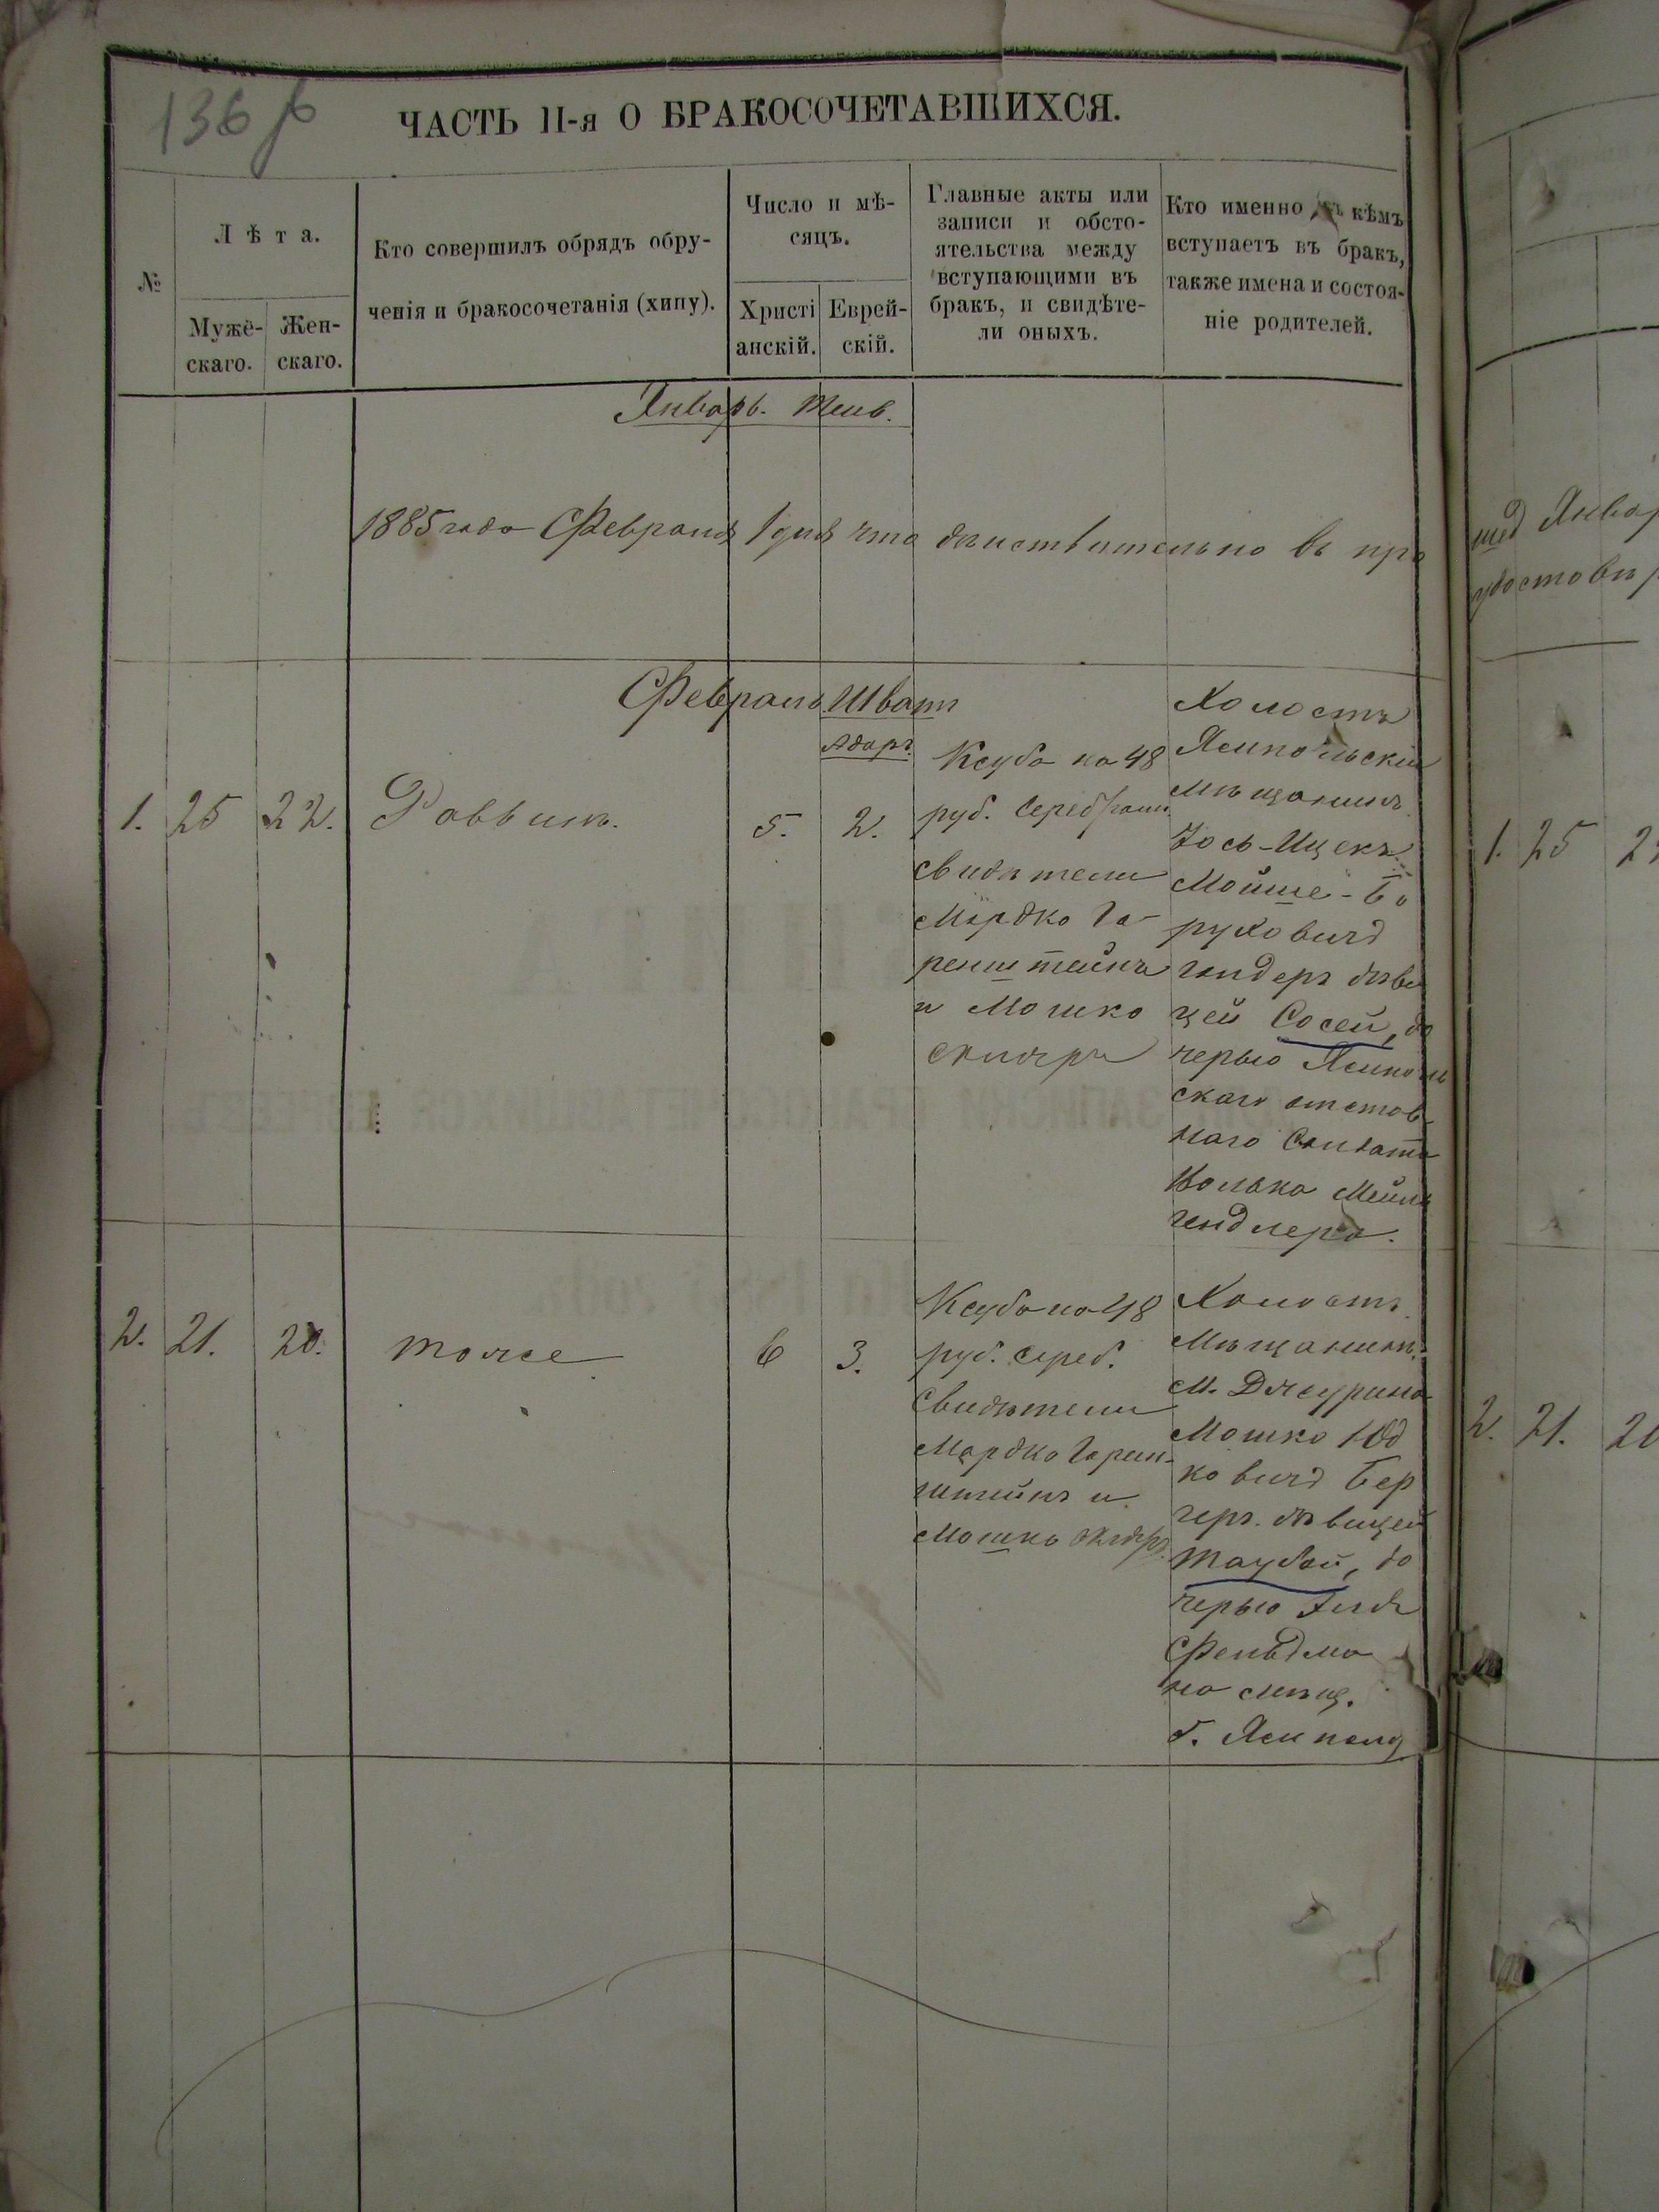 136
ЧАСТЬ II-я О БРАКОСОЧЕТАВШИХСЯ.
№
Лѣта.
Мужескаго.
Женскаго.
Кто совершилъ обрядъ обру-
ченія и бракосочетанія (хипу).
Число и мѣ-
сяцъ.
Христі
анскій.
Еврей-
скій.
Главные акты или
записи и обсто-
ятельства между
вступающими въ
бракъ, и свидѣте-
ли оныхъ.
Кто именно съ кѣмъ
вступаетъ въ бракъ,
также имена и состоя-
ніе родителей.
Январь. Тейв.
1885 года Февраля 1 дня что дѣйствительно въ про
Февраль Шватъ
Адаръ
1. 25 22. Раввинъ. 5. 2.
Ксуба на 48
руб. серебромъ
свидѣтели
Мордко Го-
ренштейнъ
и Мошко
Холостъ
Ямпольскій
мѣщанинъ
Іось-Ицекъ
Мойше-Бо
руховичъ
дѣви
цей Сосей, до
черью Ямполь
скаго отстав
наго Солдата
Волька
гендлера.
2. 21. 20. тоже 6 3.
Ксуба на 48
руб. сереб.
Свидѣтели
Мордко Горен-
штейнъ и
Мошко
Холостъ
Мѣщанинъ
М. Джурина
Мошко Юд
ковичъ Бер
геръ дѣвицей
Таубой, до
черью
Фельдма
на мѣщ.
г. Ямполя
шед Январ
удостовѣр
1. 25 2
2. 21. 20